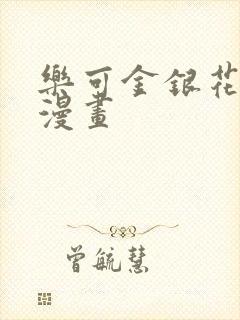 樂可金銀花
漫畫
曾毓慧